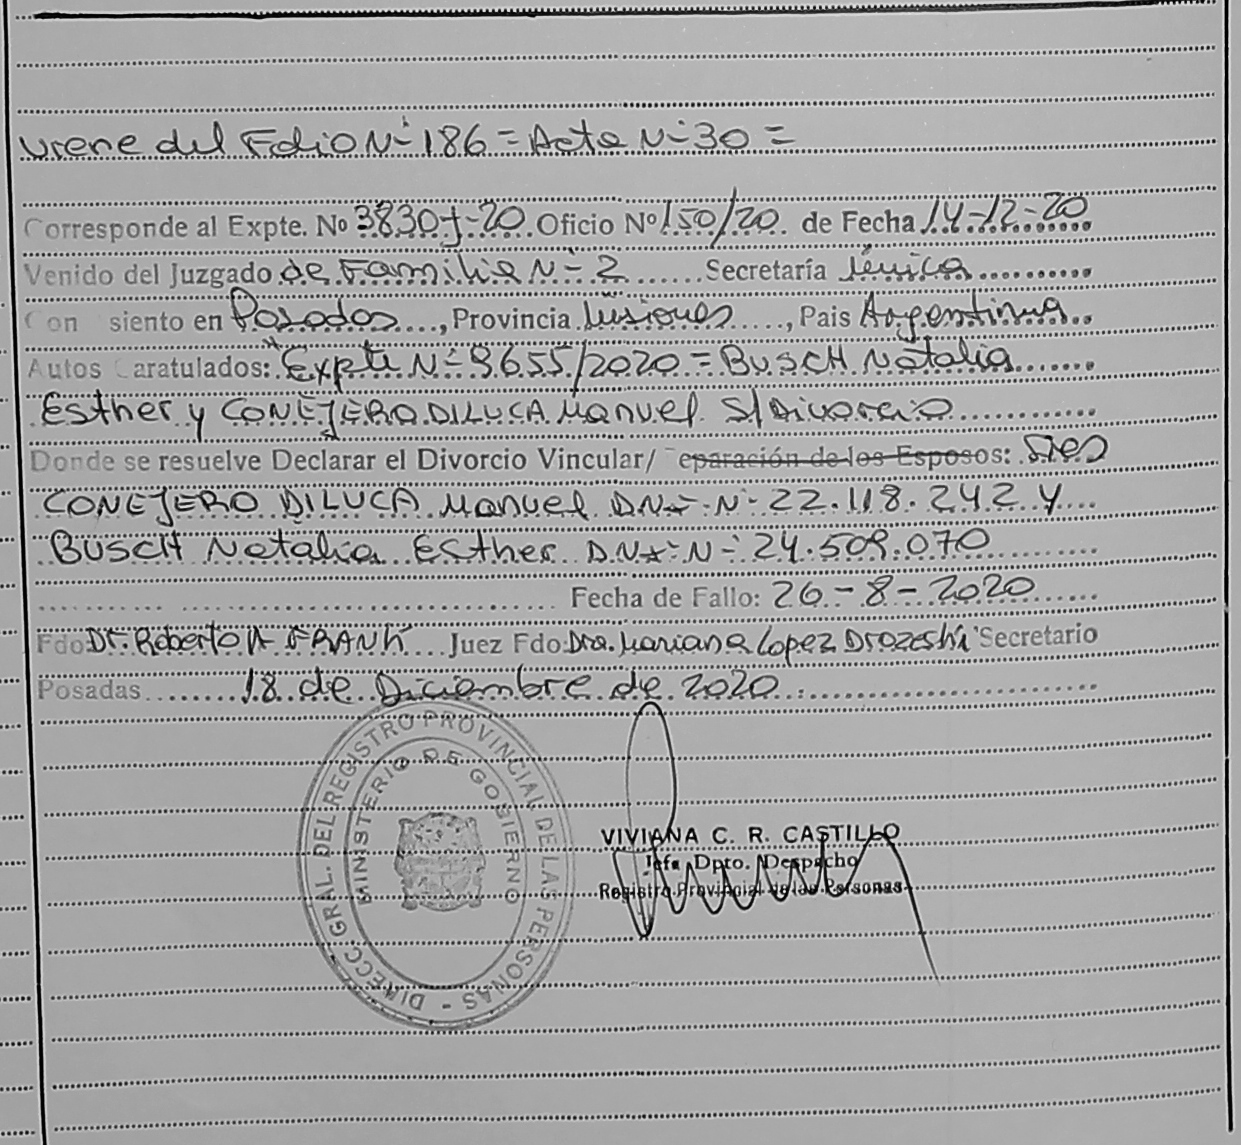 Viene del Folio N° 186 = Acta N° 30 =
Corresponde al Expte. No 3830-J-20 Oficio Nº 150/20 de Fecha 14-12-20
Venido del Juzgado de Familia N° 2 Secretaría Única
Con siento en Posadas, Provincia Misiones, Pais Argentina
Autos Caratulados: "Expte N° 9655/2020 = BUSCH Natalia
Esther y CONEJERO DILUCA Manuel S/Divorcio
Donde se resuelve Declarar el Divorcio Vincular/ eparación de los Esposos: Sres
CONEJERO DILUCA Manuel DNI N° 22.118.242 y
BUSCH Natalia Esther D.N.I N° 24.509.070
Fecha de Fallo: 26-8-2020
Fdo Dr. Roberto A FRANK Juez Fdo Dra. Mariana Lopez Drozeski Secretario
Posadas 18 de Diciembre de 2020.
DIRECC. GRAL. DEL REGISTRO PROVINCIAL DE LAS PERSONAS -
MINISTERIO DE GOBIERNO
VIVIANA C. R. CASTILLO
Jefa Dpto. Despacho
Registro Provincial de las Personas